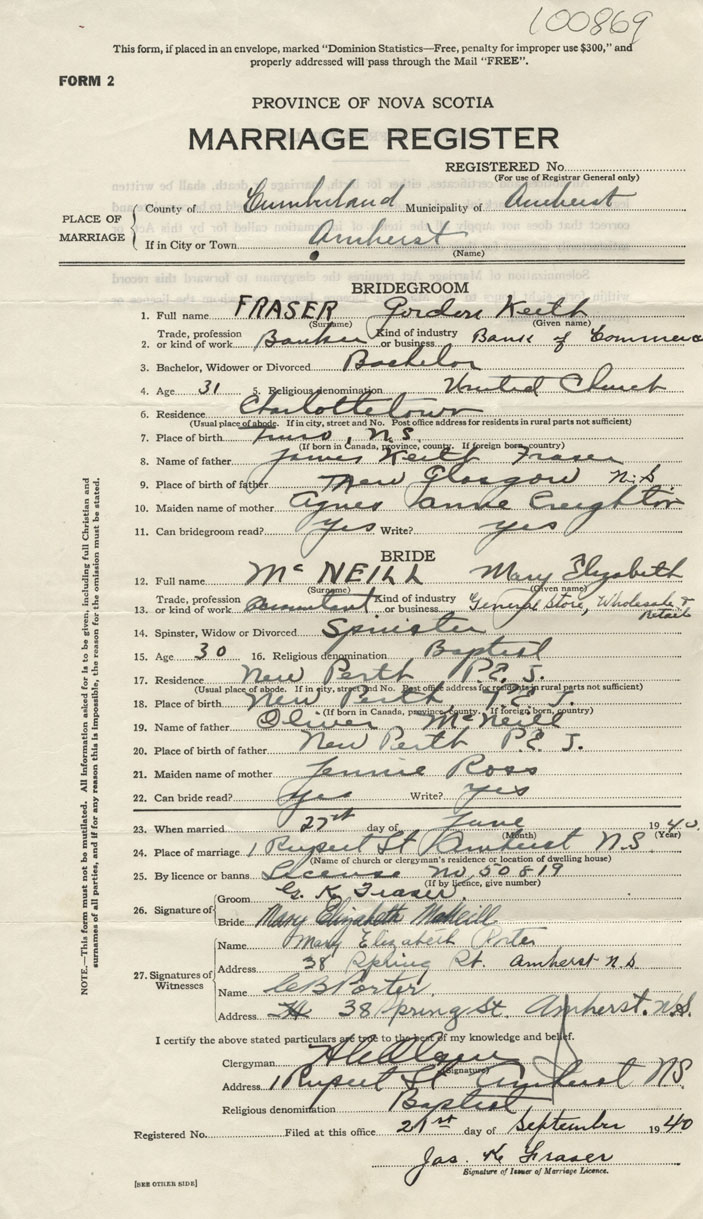 100869
This form, if placed in an envelope, marked “Dominion Statistics—Free, penalty for improper use $300,” and
properly addressed will pass through the Mail “FREE”.
FORM 2
PROVINCE OF NOVA SCOTIA
MARRIAGE REGISTER
REGISTERED No.
(For use of Registrar General only)
PLACE OF MARRIAGE
County of Cumberland Municipality of Amherst
If in City or Town Amherst
(Name)
BRIDEGROOM
1. Full name FRASER Gordon Keith
(Surname) (Given name)
2. Trade, profession or kind of work Banker Kind of industry or business Bank of Commerce
3. Bachelor, Widower or Divorced Bachelor
4. Age 31 5. Religious denomination United Church
6. Residence Charlottetown
(Usual place of abode. If in city, street and No. Post office address for residents in rural parts not sufficient)
7. Place of birth Truro, N.S.
(If born in Canada, province, county. If foreign born, country)
8. Name of father James Keith Fraser
9. Place of birth of father New Glasgow N.S.
10. Maiden name of mother Agnes Annie Creighton
11. Can bridegroom read? yes Write? yes
BRIDE
12. Full name McNEILL Mary Elizabeth
(Surname) (Given name)
13. Trade, profession or kind of work Accountant Kind of industry or business General Store, Wholesale & Retail
14. Spinster, Widow or Divorced Spinster
15. Age 30 16. Religious denomination Baptist
17. Residence New Perth P.E.I.
(Usual place of abode. If in city, street and No. Post office address for residents in rural parts not sufficient)
18. Place of birth New Perth P.E.I.
(If born in Canada, province, county. If foreign born, country)
19. Name of father Oliver McNeill
20. Place of birth of father New Perth P.E.I.
21. Maiden name of mother Jennie Ross
22. Can bride read? yes Write? yes
23. When married day of June 1940.
(Month) (Year)
24. Place of marriage 1 Rupert St Amherst N.S.
(Name of church or clergyman's residence or location of dwelling house)
25. By licence or banns License No. 50819
(If by licence, give number)
26. Signature of
Groom G. K. Fraser
Bride Mary Elizabeth McNeill
27. Signatures of Witnesses
Name Mary Elizabeth Porter
Address 38 Spring St. Amherst N.S
Name C B Porter
Address 38 Spring St. Amherst. N.S.
I certify the above stated particulars are true to the best of my knowledge and belief.
Clergyman
(Signature)
Address 1 Rupert St Amherst N.S.
Religious denomination Baptist
Registered No. Filed at this office 21st day of September 1940
Jas. K. Fraser
Signature of Issuer of Marriage Licence.
[SEE OTHER SIDE]
NOTE.—This form must not be mutilated. All Information asked for is to be given, including full Christian and
surnames of all parties, and if for any reason this is impossible, the reason for the omission must be stated.